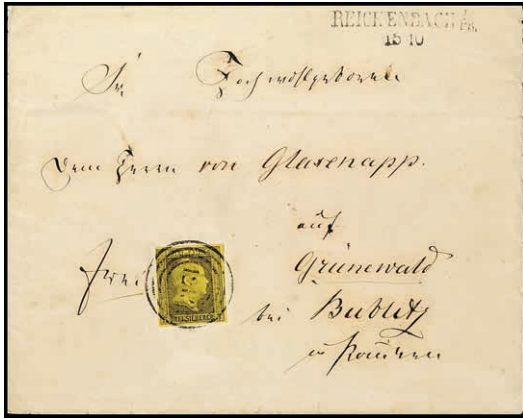 REICHENBACH
15 10
Sr. Hochwohlgeboren
dem Herrn von Glasenapp.
auf
frei Grünewald
bei Bublitz
in Pommern